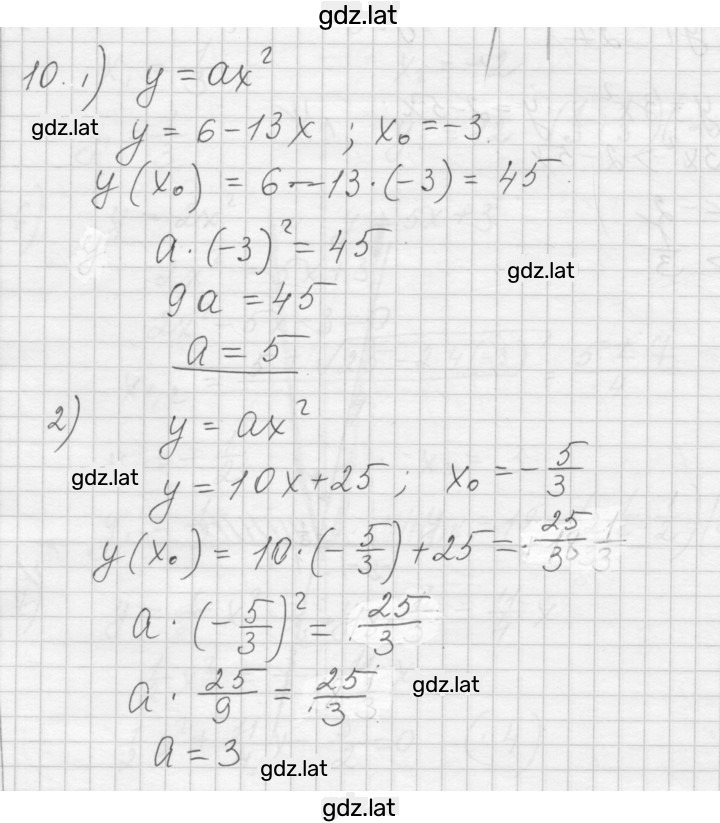 gdz.lat
10. 1) y = ax²
gdz.lat
y = 6 - 13x ; x₀ = -3
y(x₀) = 6 - 13·(-3) = 45
a·(-3)² = 45
gdz.lat
9a = 45
a = 5
2) y = ax²
gdz.lat
y = 10x + 25 ; x₀ = -5/3
y(x₀) = 10·(-5/3) + 25 = 25/3
a·(-5/3)² = 25/3
a·25/9 = 25/3
gdz.lat
a = 3
gdz.lat
gdz.lat